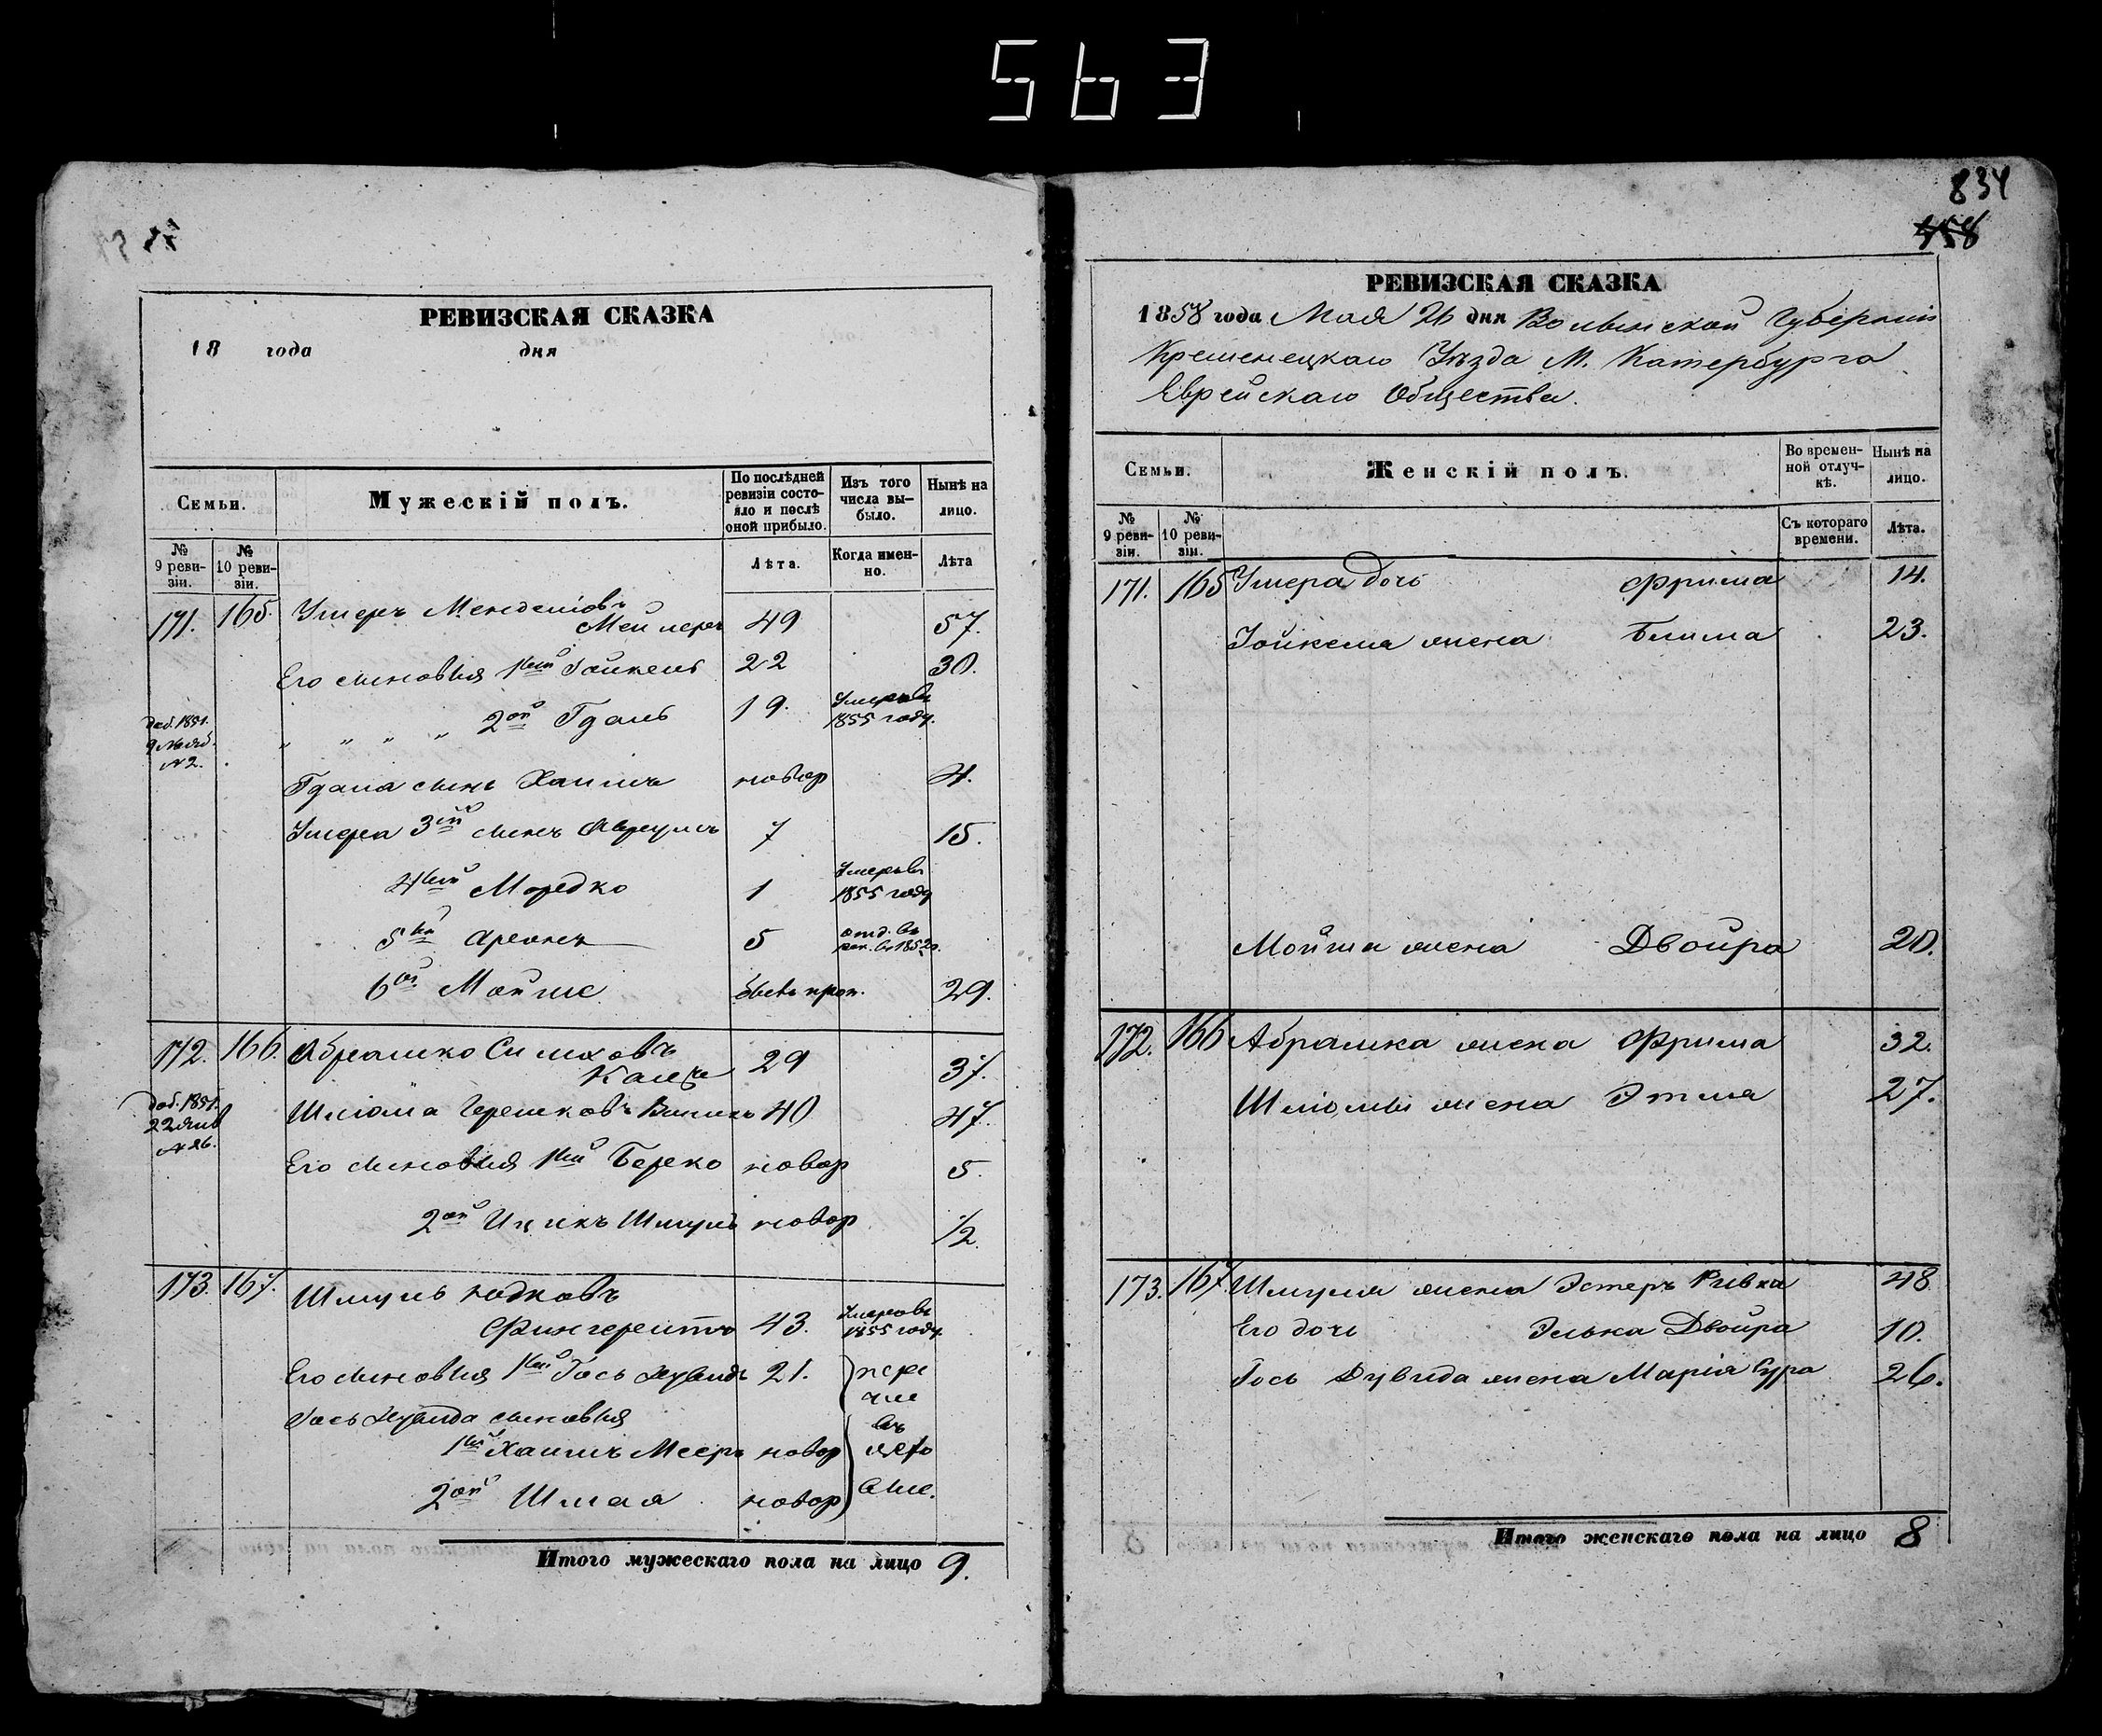 563
РЕВИЗСКАЯ СКАЗКА
18 года дня
Семьи.
Мужескій полъ.
По послѣдней ревизіи состояло и послѣ оной прибыло.
Изъ того числа выбыло.
Нынѣ на лицо.
№ 9 ревизіи.
№ 10 ревизіи.
Лѣта.
Когда именно.
Лѣта
171. 165. Умеръ Менделіовъ
Мейлеръ 49 57.
Его сыновья 1ый Іойкель 22 30.
доб. 1851.
9 Нояб.
№ 2.
" " " " 2ой Гдаль 19. Умеръ въ 1855 году.
Гдаля сынъ Хаимъ новор 4.
Умера 3ій сынъ Аврумъ 7 15.
4ый Мордко 1 Умеръ въ 1855 году
5ый Аронъ 5 отд. въ рек. въ 1852 г.
6ой Мойше бывъ проп. 29.
172. 166. Абрамко Симховъ
29 37.
доб. 1851.
22 Янв
№ 26.
Шлiома Гершковъ 40 47.
Его сыновья 1ый Берко новор 5.
2ой Ицикъ Шмуль новор 1/2
173. 167. Шмуль Юдковъ
Фингерейтъ 43. Умеръ въ 1855 году.
Его сыновья 1ый Гось Дувидъ 21.
пере
чис
въ
Гось Дувида сыновья
1ый Хаимъ Мееръ новор
2ой Шмая новор
Итого мужескаго пола на лицо 9.
834
458
РЕВИЗСКАЯ СКАЗКА
1858 года Мая 26 дня Волынской Губерніи
Кременецкаго Уѣзда М. Катербурга
Еврейскаго Общества.
Семьи.
Женскій полъ.
Во временной отлучкѣ.
Нынѣ на лицо.
№ 9 ревизіи.
№ 10 ревизіи.
Съ котораго времени.
Лѣта.
171. 165 Умера дочь Фрима 14.
Іойкеля жена Блима 23.
Мойши жена Двойра 20.
172. 166 Абрамка жена Фрима 32.
Шліомы жена Этля 27.
173. 167 Шмуля жена Эстеръ Ривка 48
Его дочь Элька Двойра 10.
Гось Дувида жена Марія Сура 26.
Итого женскаго пола на лицо 8